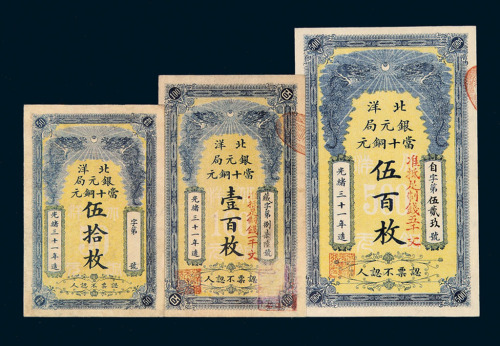 北洋
銀元局
當十銅元
伍拾枚
字第 號
光緒三十一年造
認票不認人
北洋
銀元局
當十銅元
壹百枚
光緒三十一年造
認票不認人
北洋
銀元局
當十銅元
伍百枚
自字第伍貳玖號
光緒三十一年造
認票不認人
500